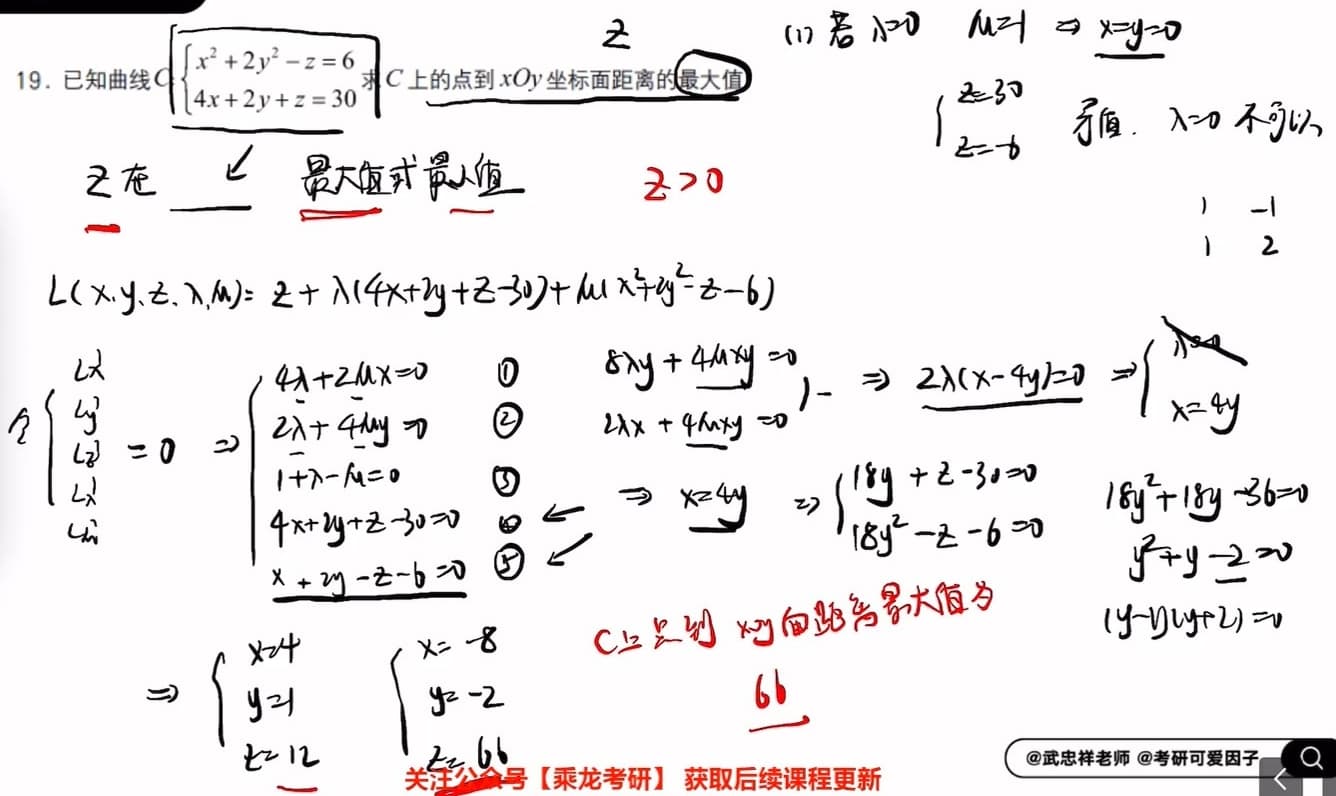 19. 已知曲线C: { x² + 2y² − z = 6
4x + 2y + z = 30
求 C 上的点到 xOy 坐标面距离的最大值
z
(1) 若 λ=0 μ=1 ⇒ x=y=0
{ z=30
z=-6
矛盾. λ=0 不可以
z 在 最大值或最小值
z>0
1 -1
1 2
L(x.y.z.λ.μ)= z + λ(4x+2y+z-30)+μ(x²+2y²-z-6)
令 { Lx'
Ly'
Lz'
Lλ'
Lμ'
= 0 ⇒
{ 4λ+2μx=0 ①
2λ+4μy=0 ②
1+λ-μ=0 ③
4x+2y+z-30=0 ④
x+2y-z-6=0 ⑤
8λy + 4μxy=0
2λx + 4μxy=0
} - ⇒ 2λ(x-4y)=0 ⇒ { λ=0
x=4y
⇒ x=4y ⇒ { 18y + z-30=0
18y²-z-6=0
18y²+18y-36=0
y²+y-2=0
(y-1)(y+2)=0
⇒ { x=4
y=1
z=12
{ x=-8
y=-2
z=66
C上点到 xoy 面距离最大值为
66
@武忠祥老师 @考研可爱因子
关注公众号【乘龙考研】 获取后续课程更新